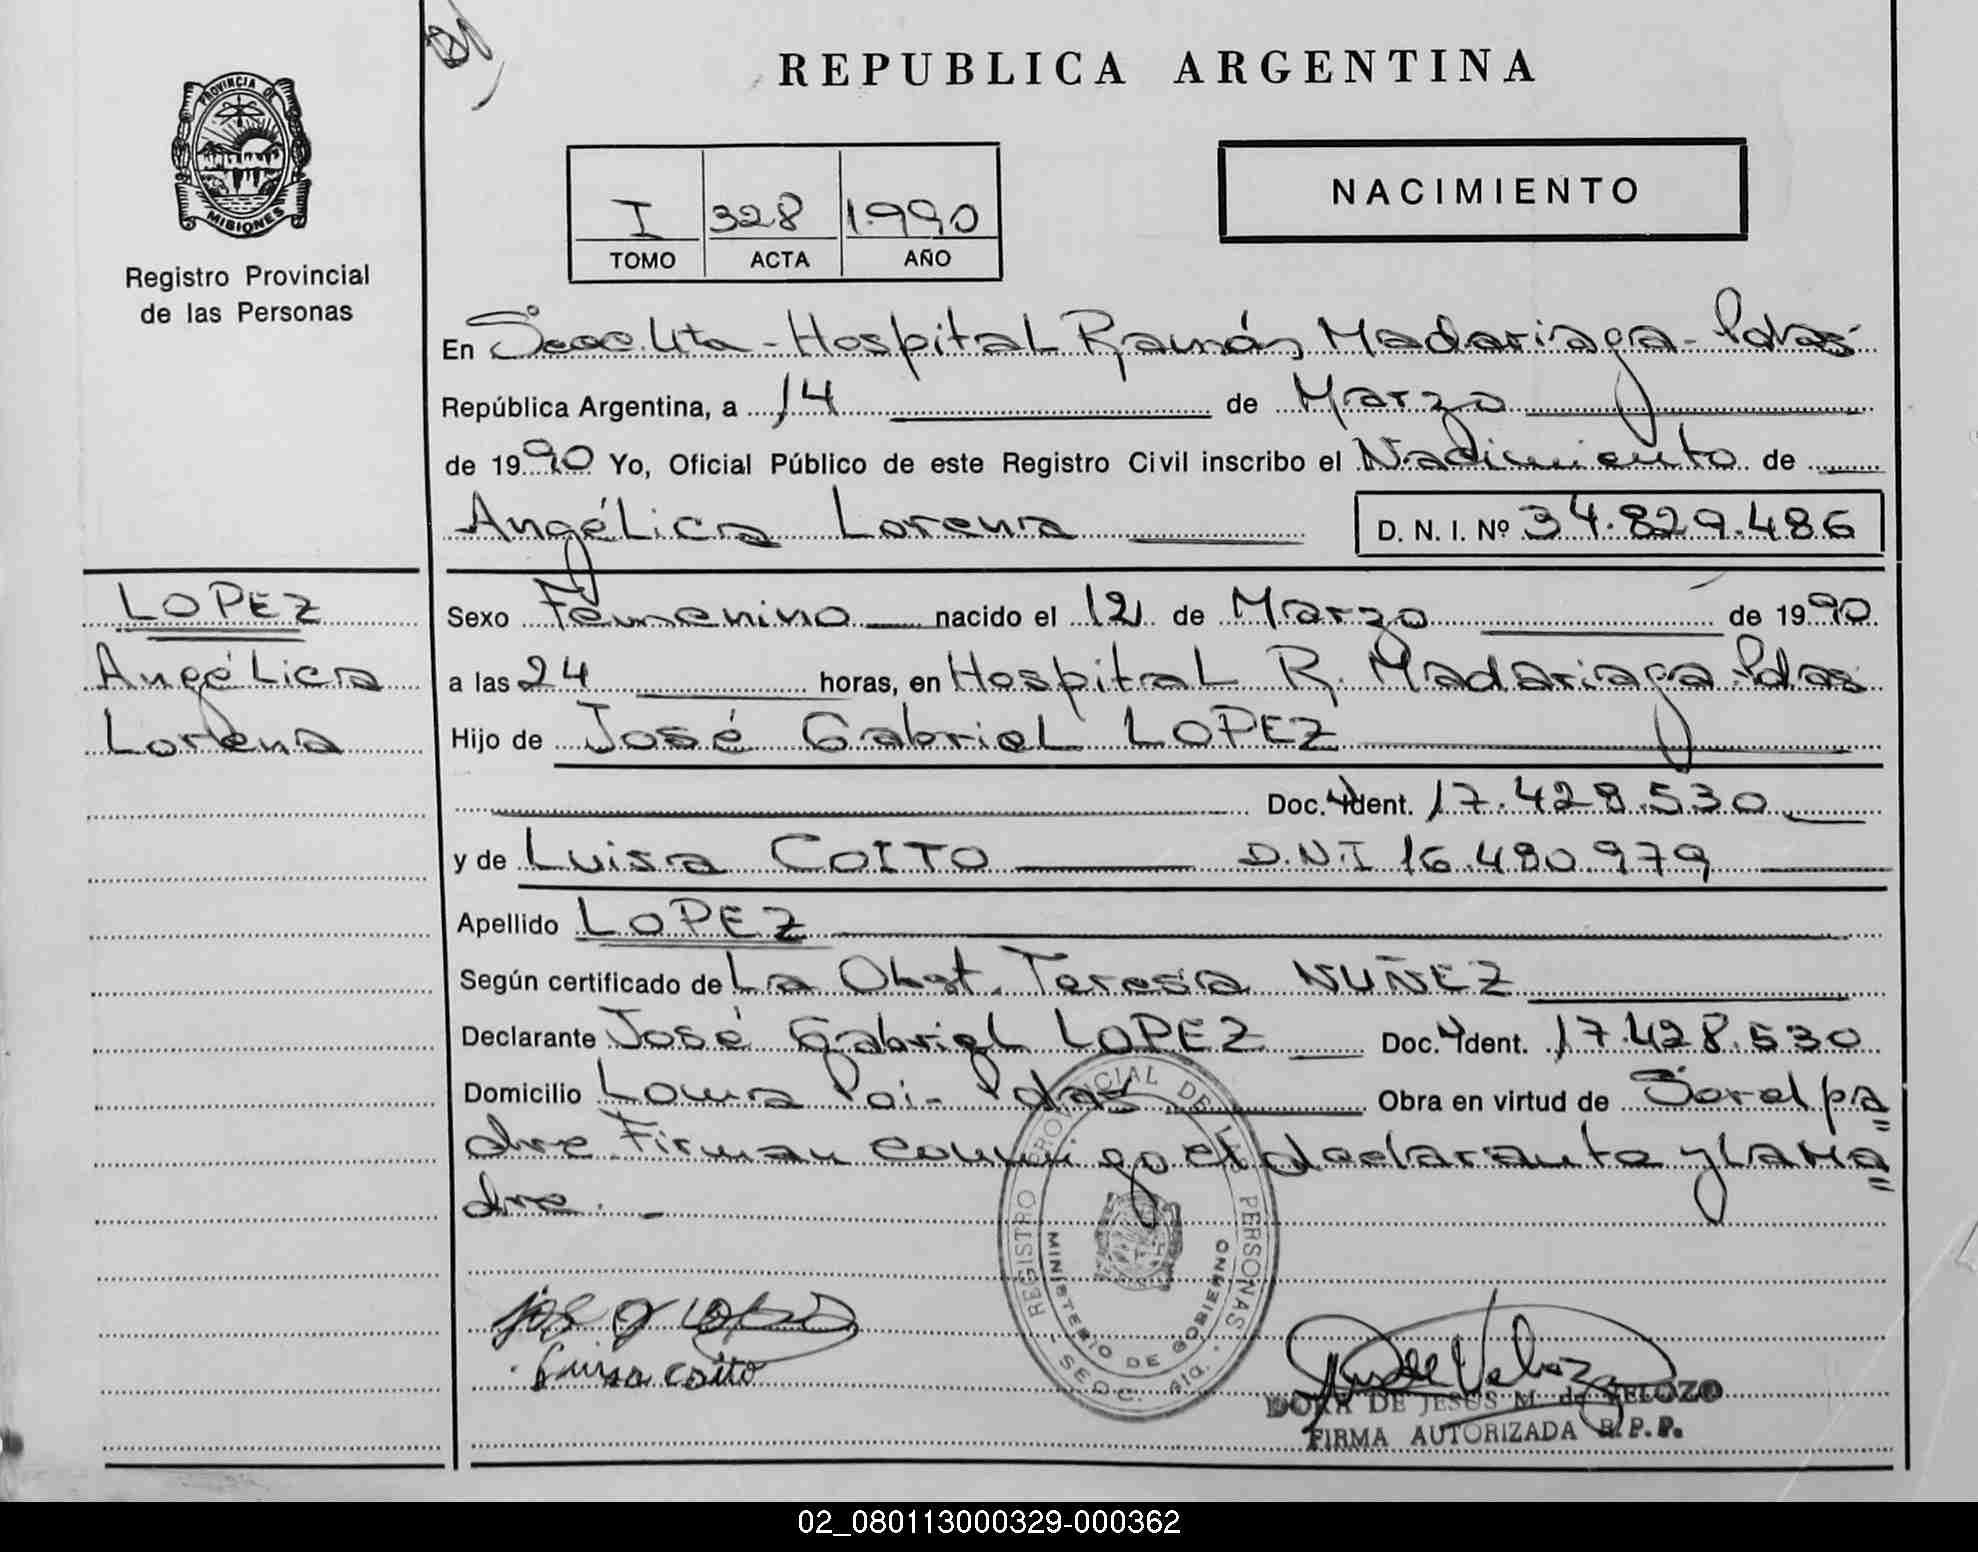 REPUBLICA ARGENTINA
PROVINCIA DE
MISIONES
Registro Provincial
de las Personas
I 328 1990
TOMO ACTA AÑO
NACIMIENTO
En Secc. 4ta - Hospital Ramón Madariaga - Pdas
República Argentina, a 14 de Marzo
de 1990 Yo, Oficial Público de este Registro Civil inscribo el Nacimiento de
Angélica Lorena D. N. I. Nº 34.829.486
LOPEZ
Angélica
Lorena
Sexo Femenino nacido el 12 de Marzo de 1990
a las 24 horas, en Hospital R. Madariaga Pdas
Hijo de José Gabriel LOPEZ
Doc. Ident. 17.428.530
y de Luisa COITO D.N.I 16.480.979
Apellido LOPEZ
Según certificado de La Obst. Teresa NUÑEZ
Declarante José Gabriel LOPEZ Doc. Ident. 17.428.530
Domicilio Loma Poi - Pdas Obra en virtud de Ser el pa=
dre. Firman conmigo el declarante y la ma=
dre. -
REGISTRO PROVINCIAL DE LAS PERSONAS
MINISTERIO DE GOBIERNO
SECC. 4ta.
Luisa coito
DORA DE JESUS M. de VELOZO
FIRMA AUTORIZADA R. P. P.
02_080113000329-000362